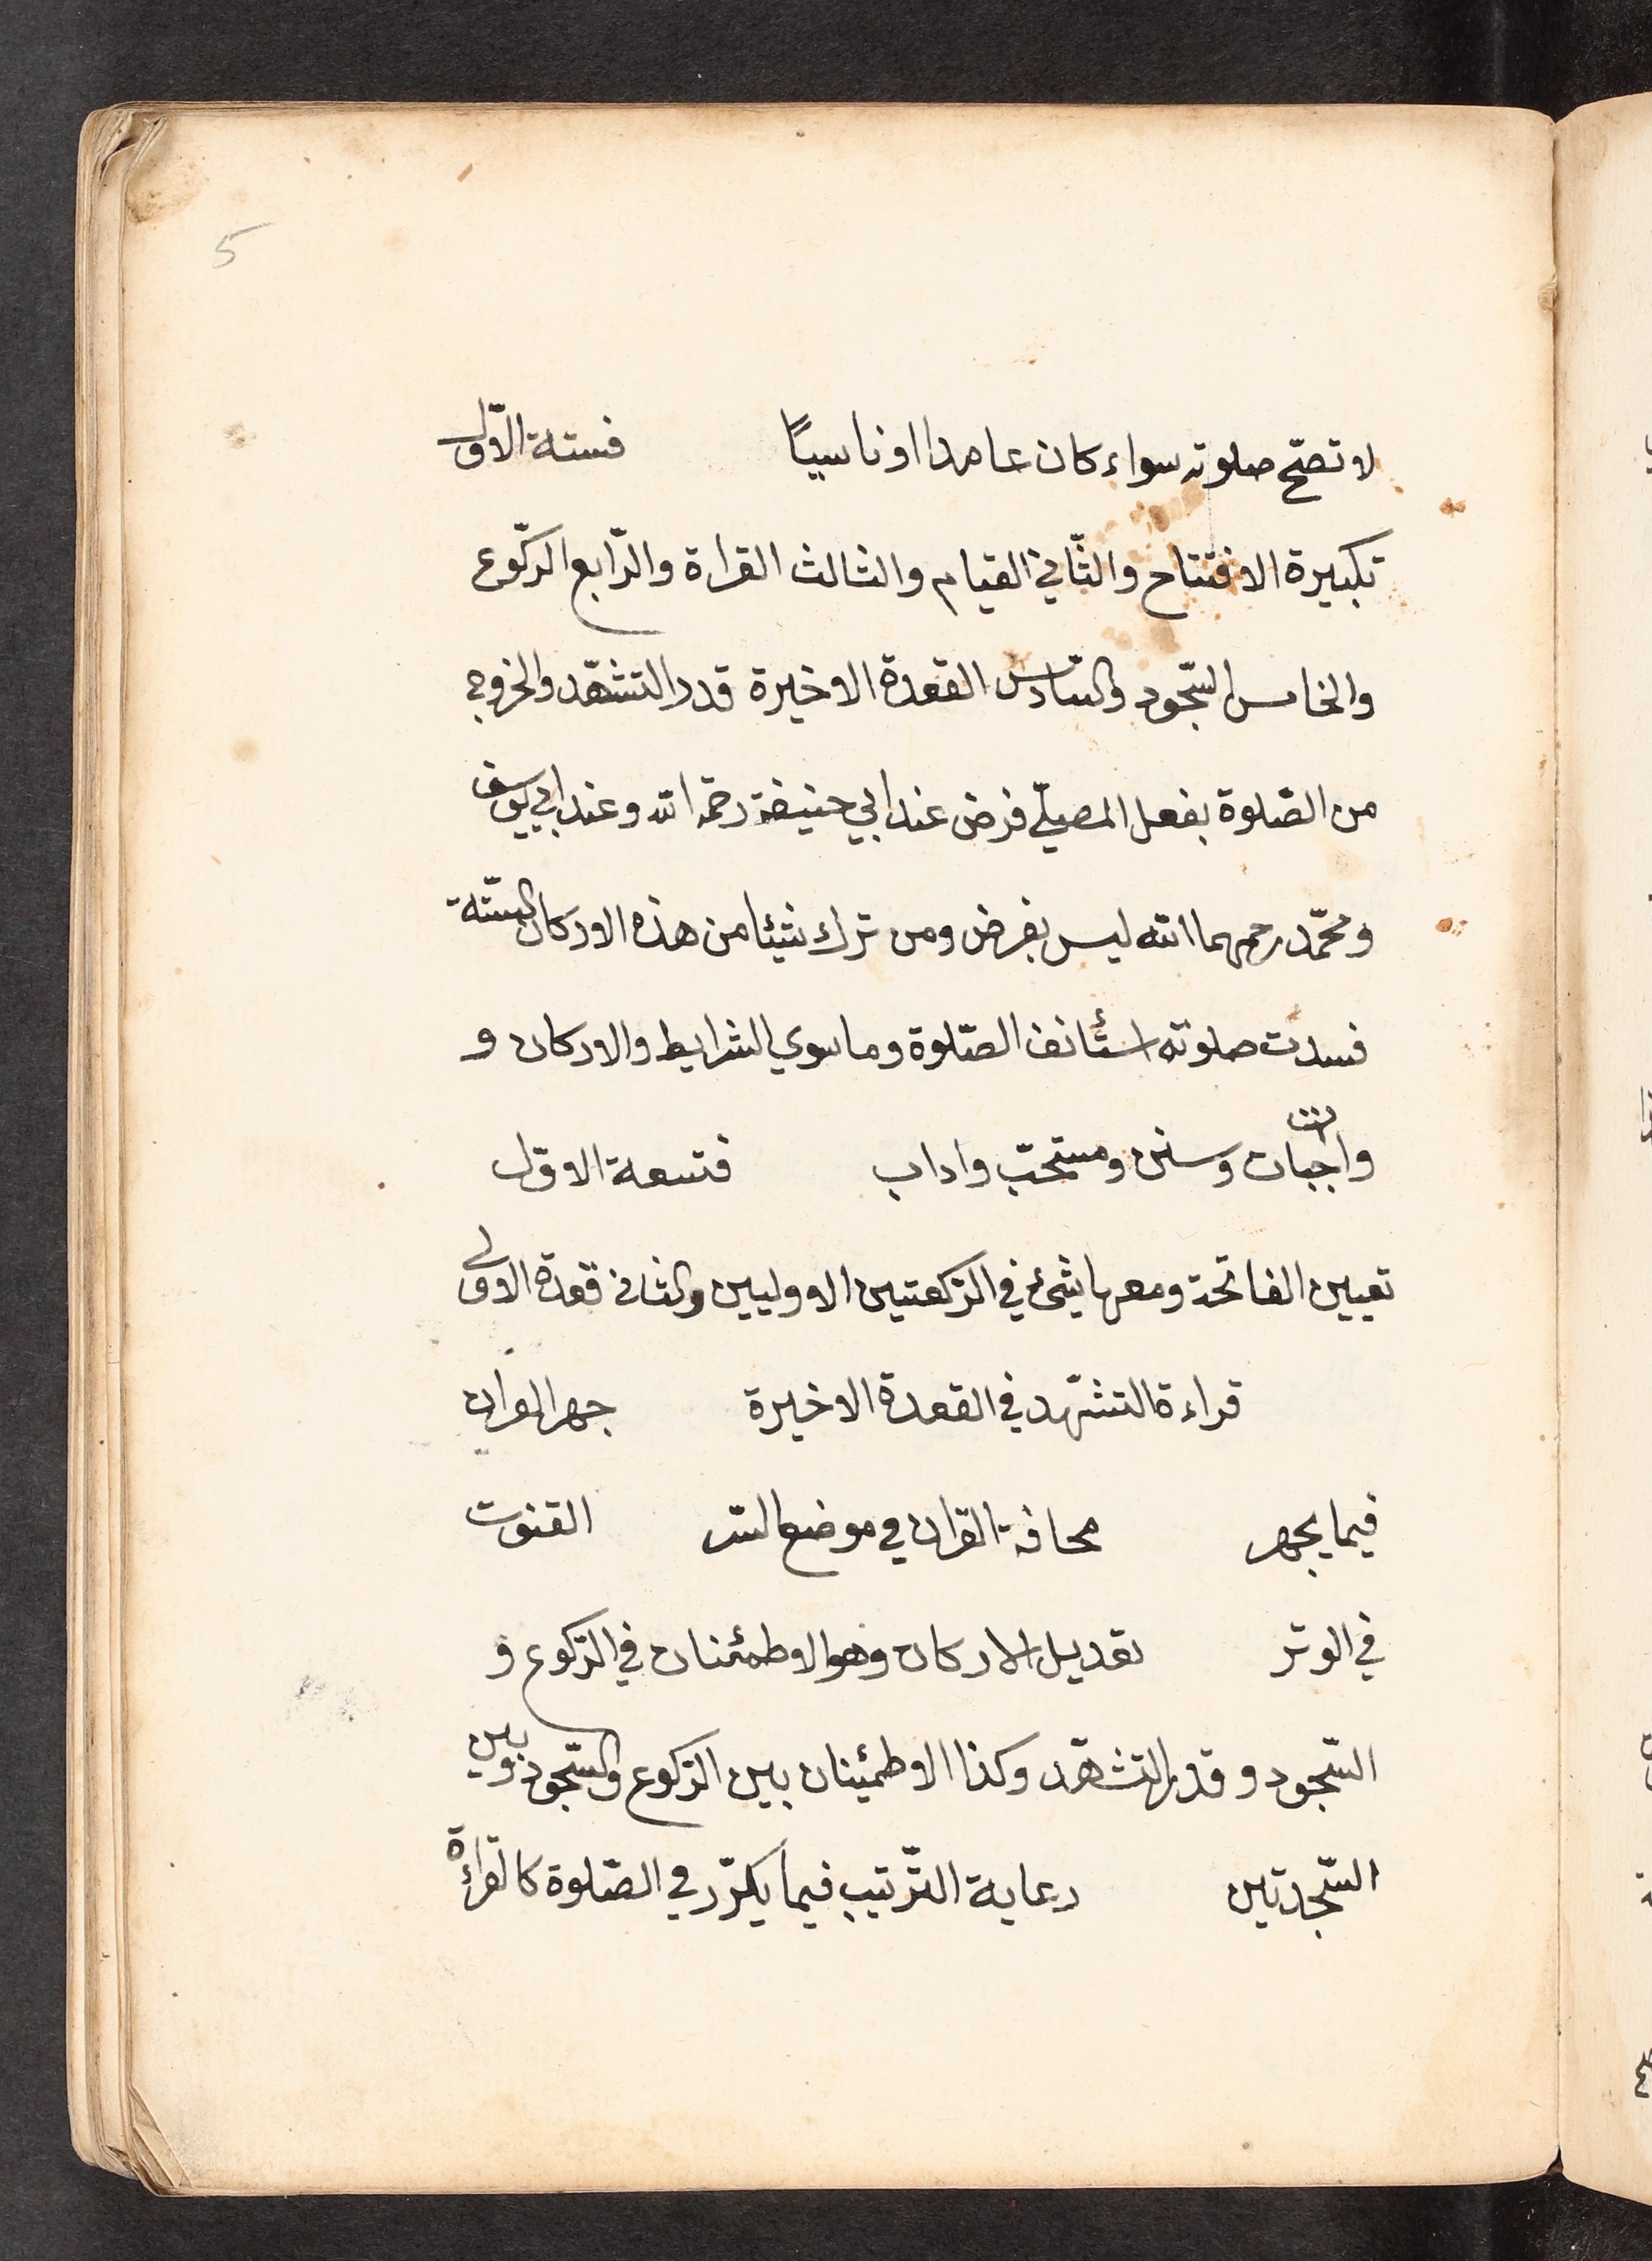 5
لا تصحّ صلوته سواء كان عامدا او ناسيًا فستة الاوّل
تكبيرة الافتتاح والثّاني القيام والثالث القراة والرّابع الركّوع
والخامس السّجود والسّادس القعدة الاخيرة قدر التشهّد والخروج
من الصّلوة بفعل المصلّي فرض عند ابي حنيفة رحمه الله وعند ابي يوسف
ومحمّد رحمهما الله ليس بفرض ومن ترك شيئا من هذه الاركان الستّة
فسدت صلوته استأنف الصّلوة وما سوي الشرايط والاركان و
واجبات وسنن ومستحبّ واداب فتسعة الاوّل
تعيين الفاتحة ومعها شئ في الرّكعتين الاوليين والثاني قعدة الاولى
قراءة التشهّد في القعدة الاخيرة جهر القران
فيما يجهر مخافة القران في موضع السّر القنوت
في الوتر تعديل الاركان وهو الاطمئنان في الرّكوع و
السّجود وقدر التشهّد وكذا الاطمئينان بين الرّكوع والسّجود وبين
السّجدتين رعاية التّرتيب فيما يكرّر في الصّلوة كالقراءة